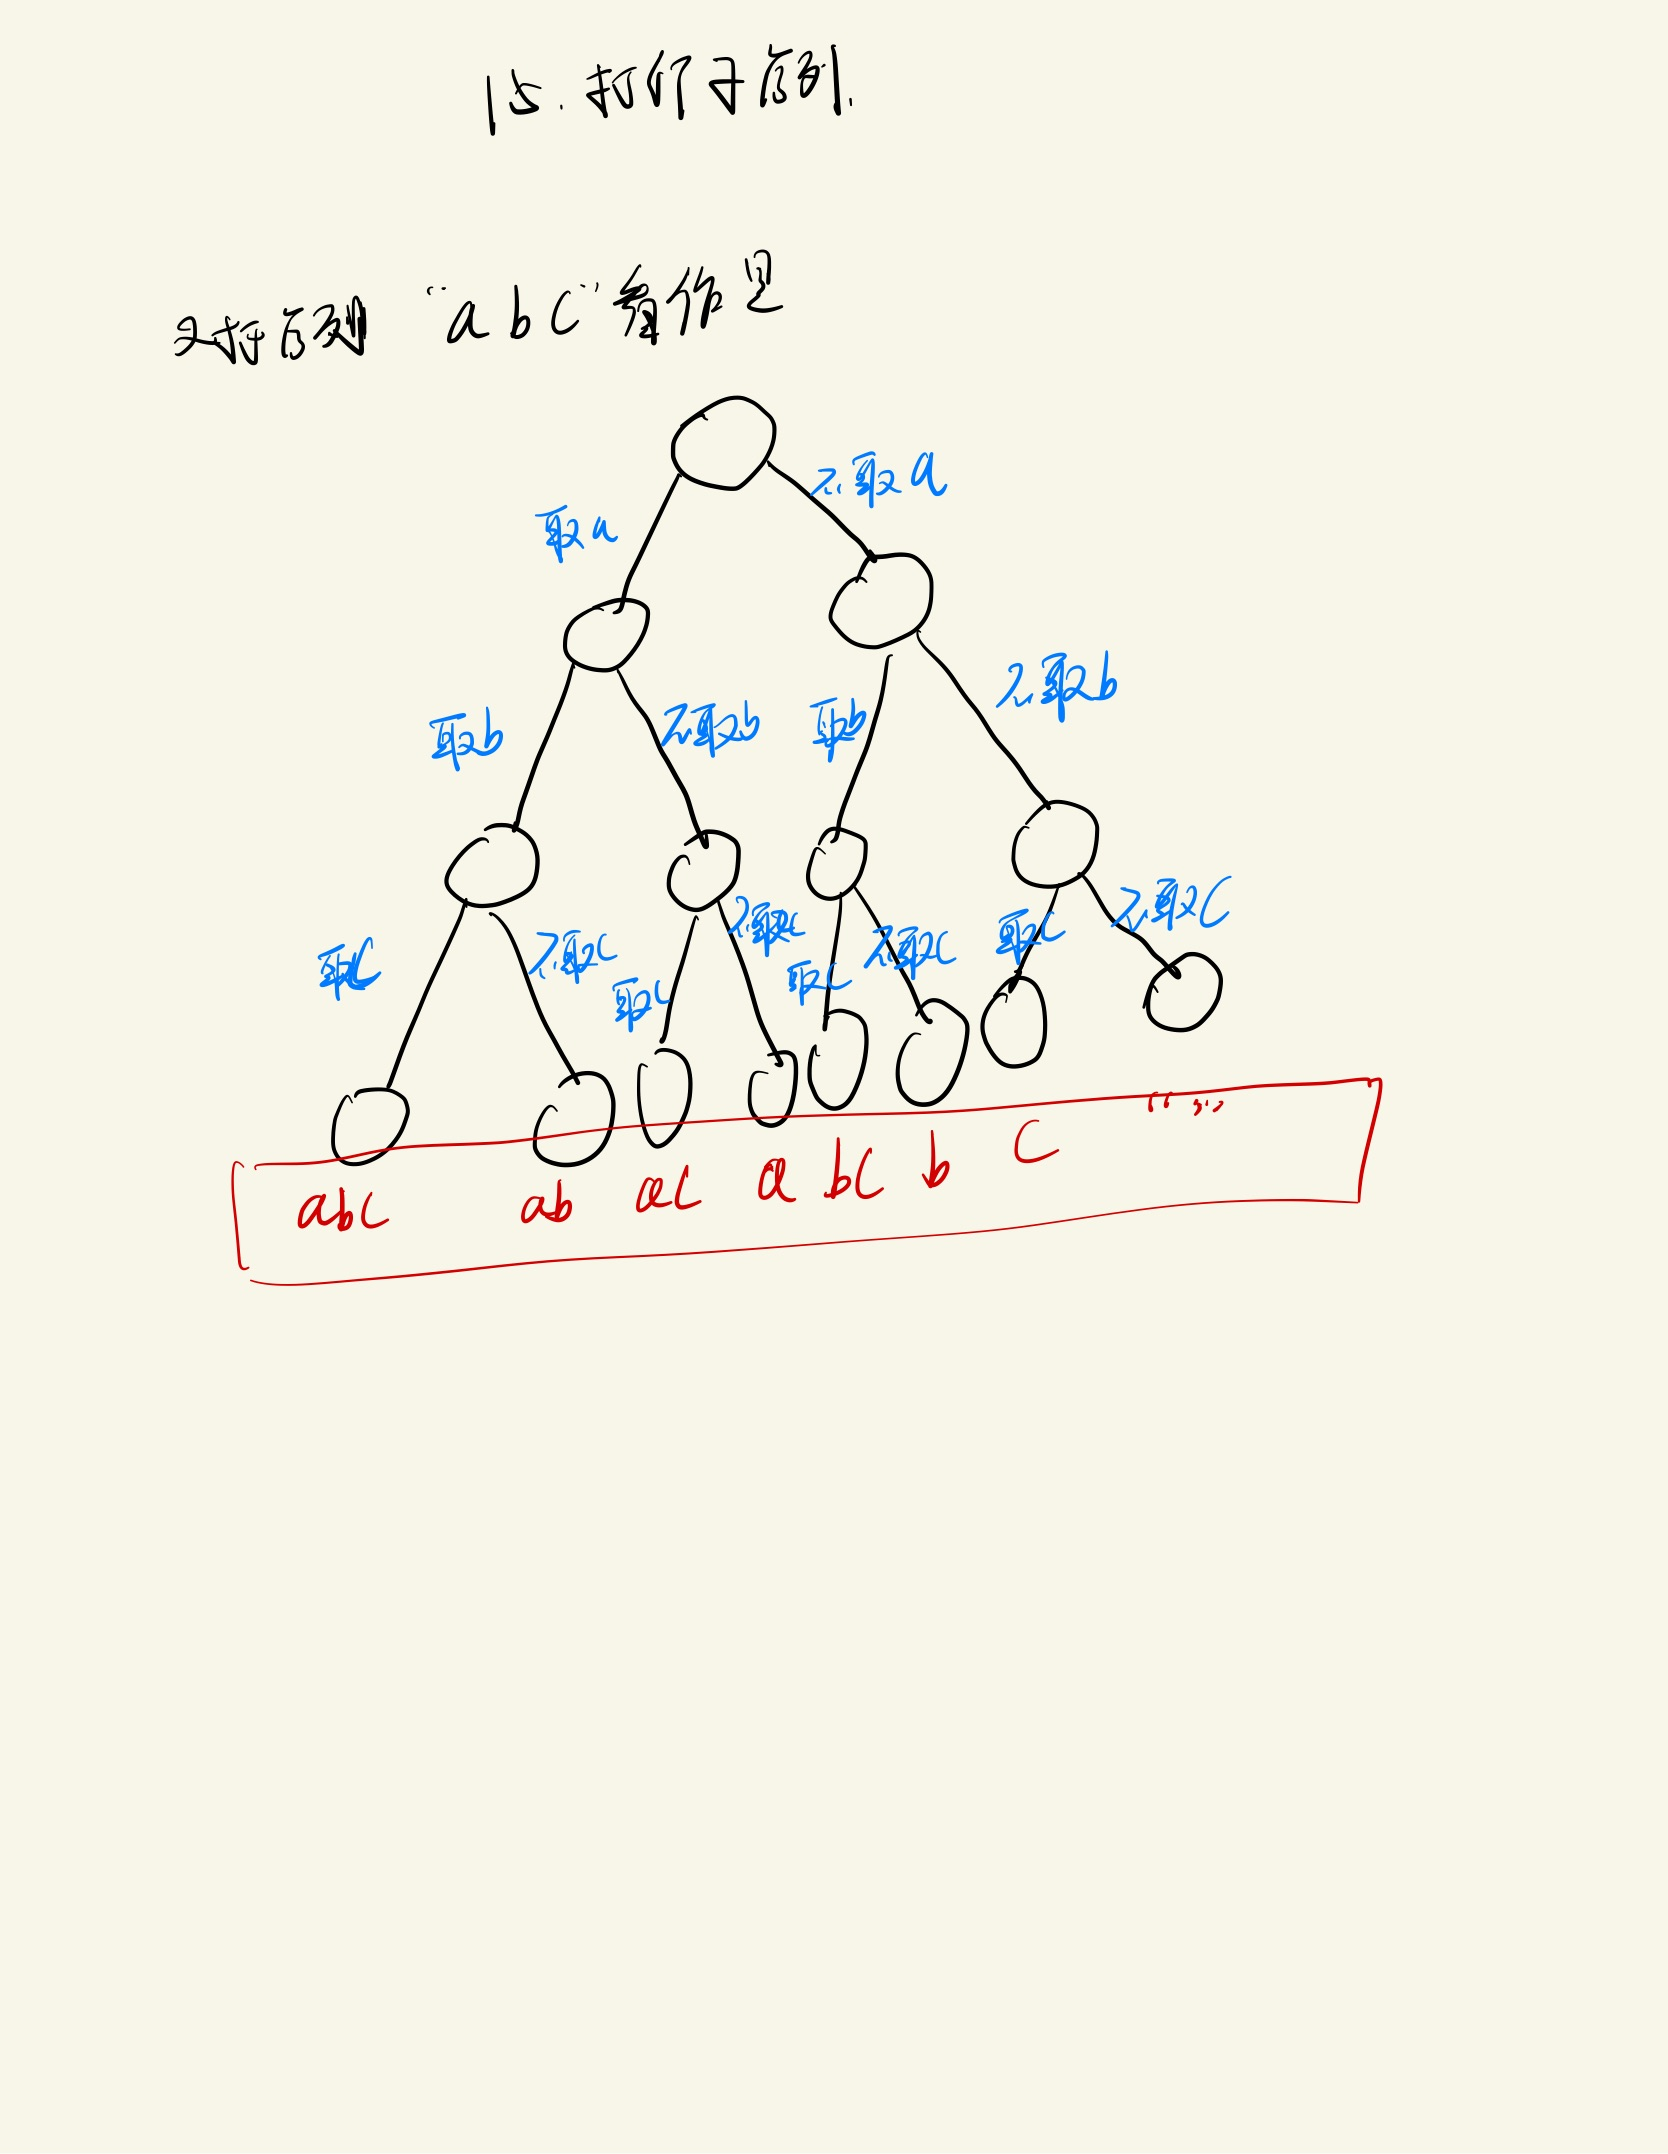 15. 打印子序列.
对于序列 "abc" 看作是
不取a
取a
不取b
取b 不取b 取b
取c 不取c 取c 不取c 取c 不取c 取c 不取c
abc ab ac a bc b c ""